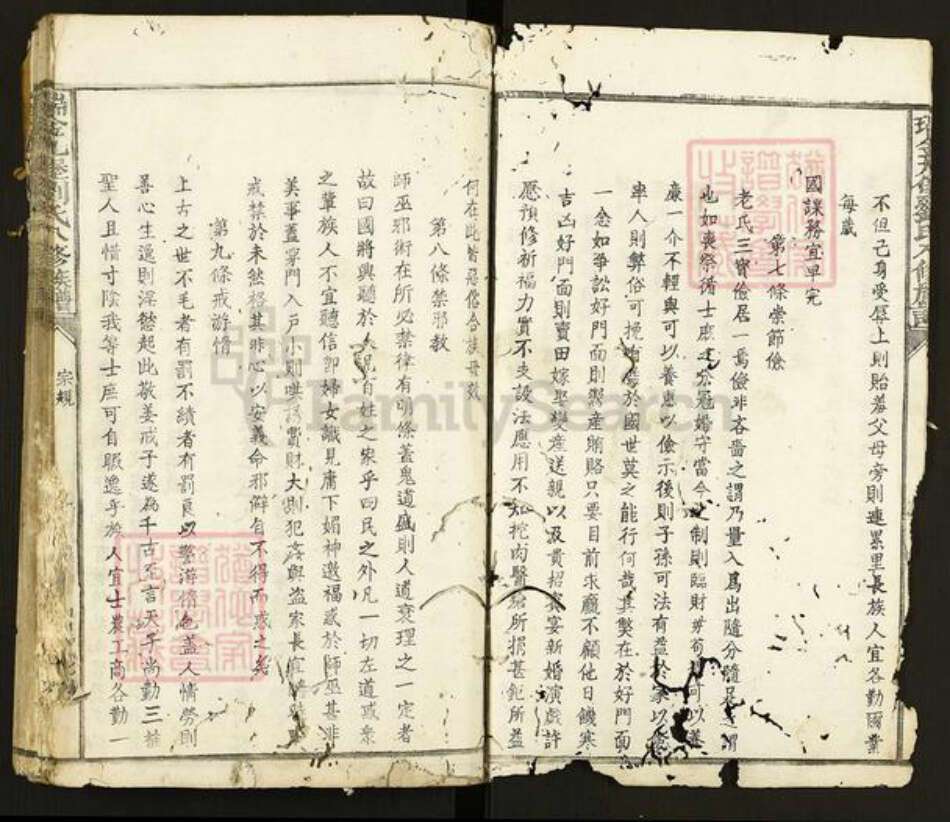 不但己身受辱上則貽羞父母旁則連累里長族人宜各勤國業
每歲
國課務宜早完
第七條崇節儉
老氏三寶儉居一焉儉非吝嗇之謂乃量入爲出隨分隨足之謂
也如喪祭循士庶之分冠婚守當今之制則臨財毋苟可以養
廉一介不輕與可以養惠以儉示後則子孫可法有益於家以儉
率人則弊俗可挽有磨於國世莫之能行何哉其獘在於好門面
一念如爭訟好門面則鬻產賄賂只要目前求贏不顧他日饑寒
吉凶好門面則賣田嫁娶變産送親以及貴招賓宴新婚演戲許
愿預修祈福力實不支設法應用不知挖肉醫瘡所損甚鉅所益
何在此皆惡俗合族毋效
第八條禁邪教
師巫邪術在所必禁律有明條蓋鬼道盛則人道衰理之一定者
故曰國將興聽於人況百姓之家乎四民之外凡一切左道惑衆
之輩族人不宜聽信卽婦女識見庸下媚神邀福惑於師巫甚非
美事蓋穿門入戶小則哄誘貲財大則犯姦與盗家長宜
戒禁於未然格其非心以安義命邪僻自不得而惑之矣
第九條戒游惰
上古之世不毛者有罰不績者有罰良以警游惰也蓋人情勞則
善心生逸則淫慾起此敬姜戒子遂為千古至言天子尚勤三推
聖人且惜寸陰我等士庶可自暇逸乎族人宜士農工商各勤一
劉氏八修族譜
宗規
FamilySearch